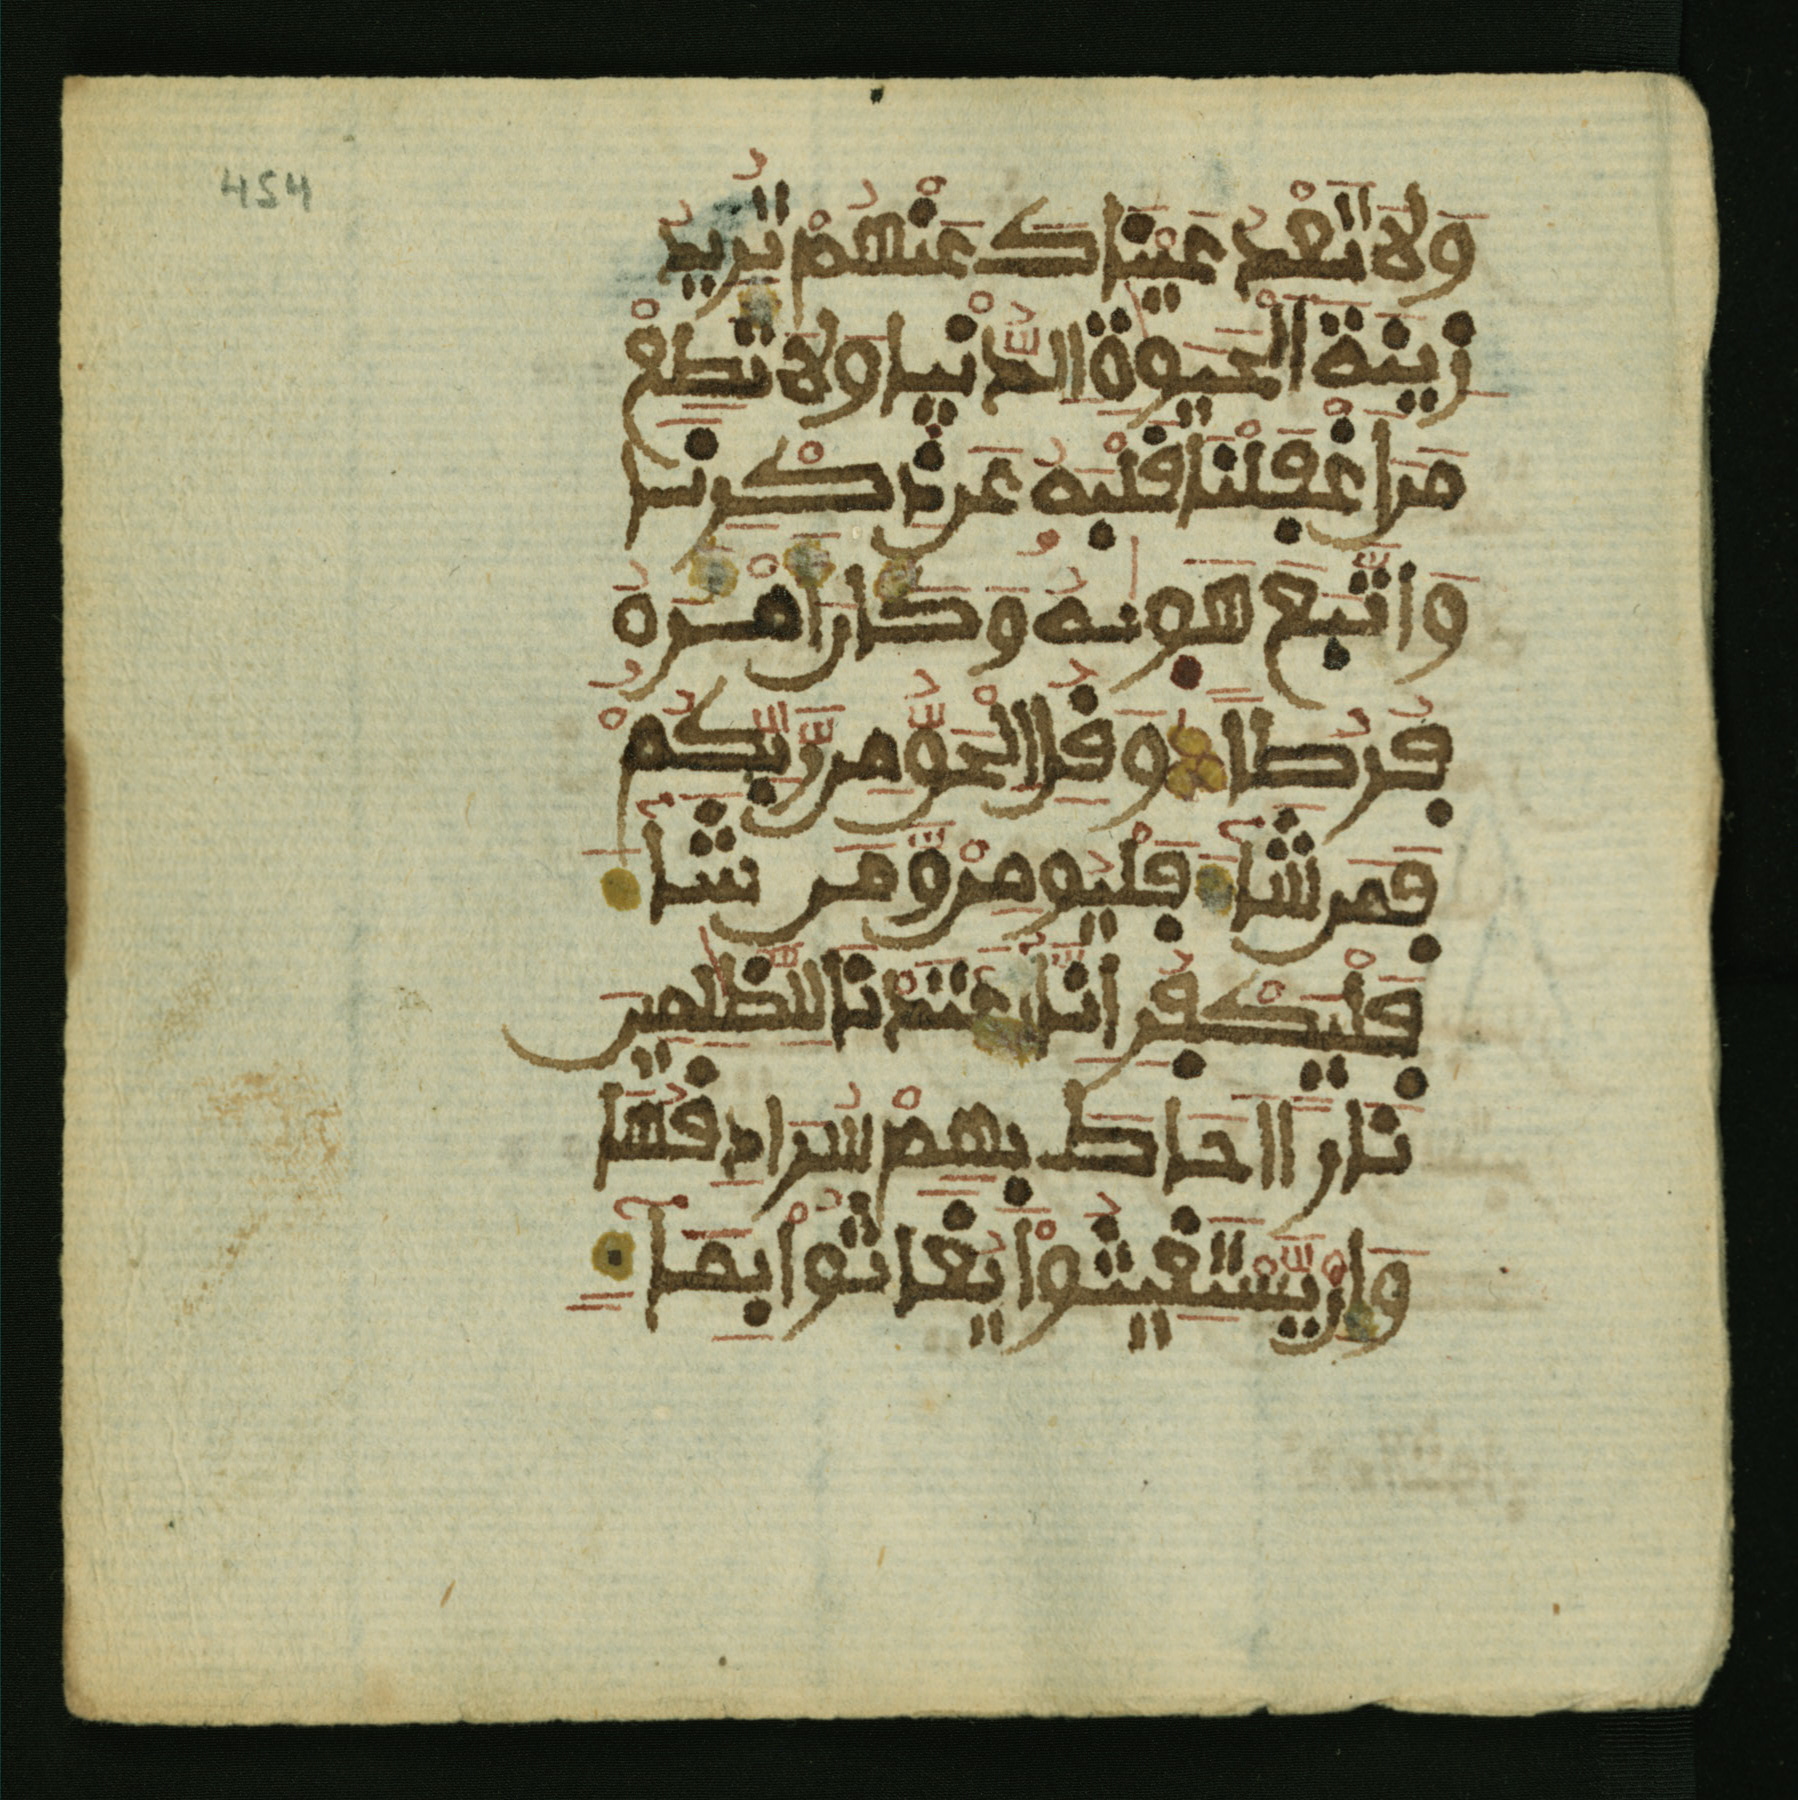 454
وَلَا تَعْدُ عَيْنَاكَ عَنْهُمْ تُرِيدُ
زِينَةَ الْحَيَوٰةِ الدُّنْيَا وَلَا تُطِعْ
مَنَ اغْفَلْنَا قَلْبَهُ عَن ذِكْرِنَا
وَاتَّبَعَ هَوٰىٰهُ وَكَانَ أَمْرُهُ
فُرُطاً وَقُلِ الْحَقُّ مِن رَّبِّكُمْ
فَمَن شَآءَ فَلْيُومِن وَّمَن شَآءَ
فَلْيَكْفُرِ انَّآ أَعْتَدْنَا لِلظَّٰلِمِينَ
نَاراً احَاطَ بِهِمْ سُرَادِقُهَا
وَإِنْ يَّسْتَغِيثُواْ يُغَاثُواْ بِمَآءٍ